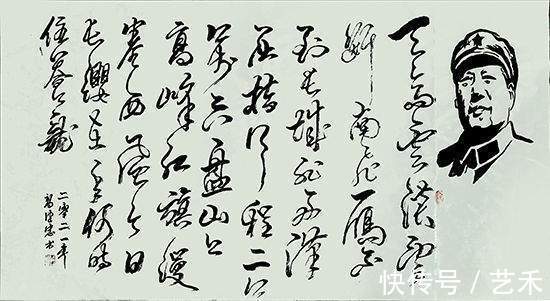 天高雲淡望
断南飞雁不
到长城非好漢
屈指行程二
万六盘山上
高峰红旗漫
卷西风今日
长缨在手何时
住苍龍
二零二一年
快传号 / 艺禾